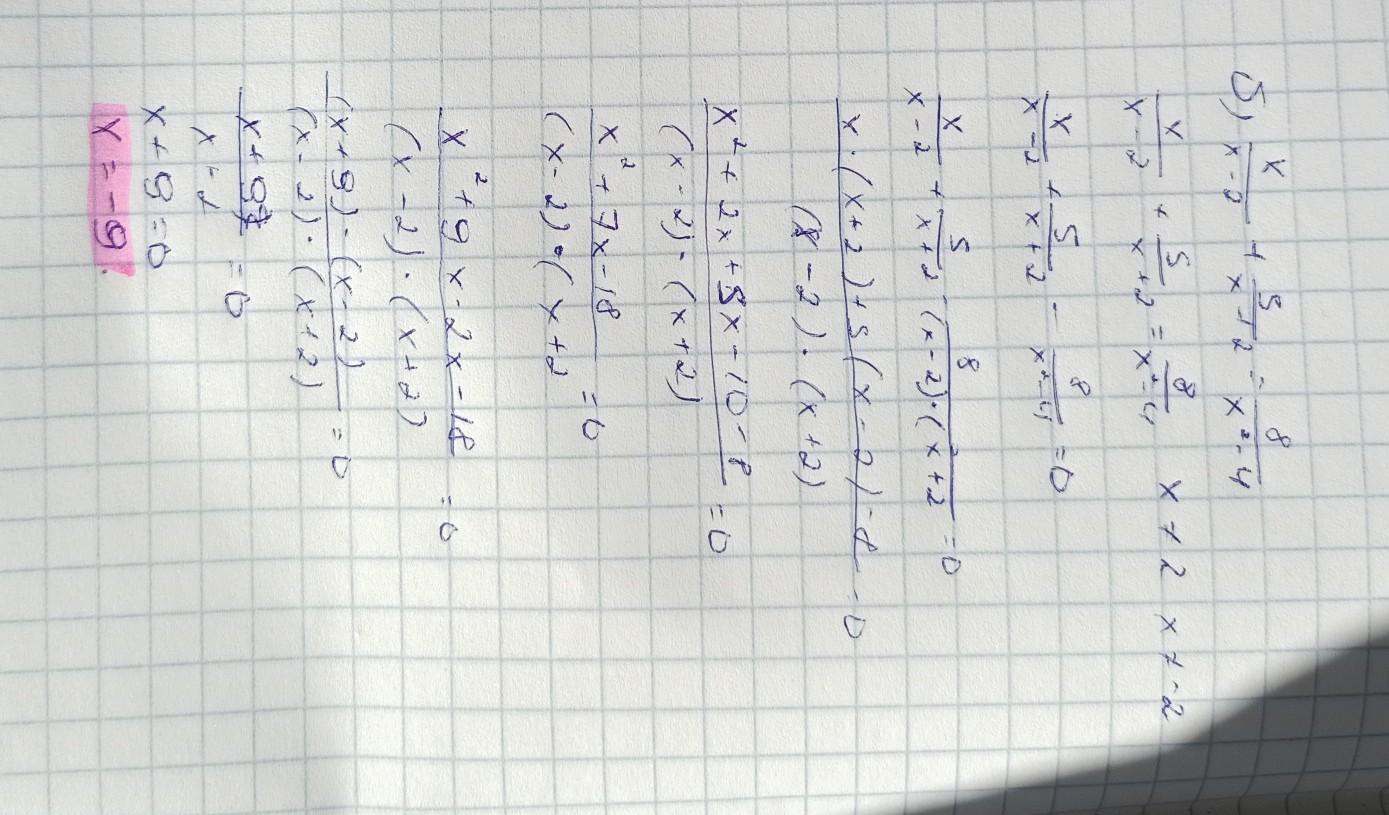 5) x/(x-2) + 5/(x+2) = 8/(x²-4)
x/(x-2) + 5/(x+2) = 8/(x²-4) x ≠ 2 x ≠ -2
x/(x-2) + 5/(x+2) - 8/(x²-4) = 0
x/(x-2) + 5/(x+2) - 8/((x-2)·(x+2) = 0
(x·(x+2)+5(x-2)-8)/((x-2)·(x+2)) = 0
(x²+2x+5x-10-8)/((x-2)·(x+2)) = 0
(x²+7x-18)/((x-2)·(x+2) = 0
(x²+9x-2x-18)/((x-2)·(x+2)) = 0
((x+9)·(x-2))/((x-2)·(x+2)) = 0
(x+9)/(x+2) = 0
x+9=0
x=-9.